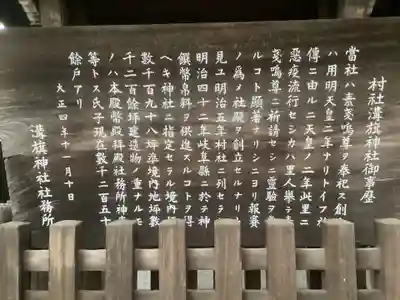 村社溝旗神社御事歴
当社ハ素戔嗚尊ヲ奉祀ス創立
ハ用明天皇二年ナリトイフ社
傳ニ由ルニ天皇ノ二年此里ニ
惡疫流行セシカハ里人擧テ素
戔嗚尊ニ祈請セシニ靈驗ヲ
ルコト顯著ナリシニヨリ報賽
ノ爲メ社殿ヲ創立セルナリト
見ユ明治五年村社ニ列セラレ
明治四十二年岐阜縣ニ於テ神
饌幣帛料ヲ供進スルコトヲ得
ヘキ神社ニ指定セラル境内
數千百九十八坪準境内地坪數
千二百餘坪建造物ノ重ナルモ
ノハ本殿幣殿拜殿社務所神
等トス氏子現在數千二百五十
餘戸アリ
大正四年十一月十日
溝旗神社社務所